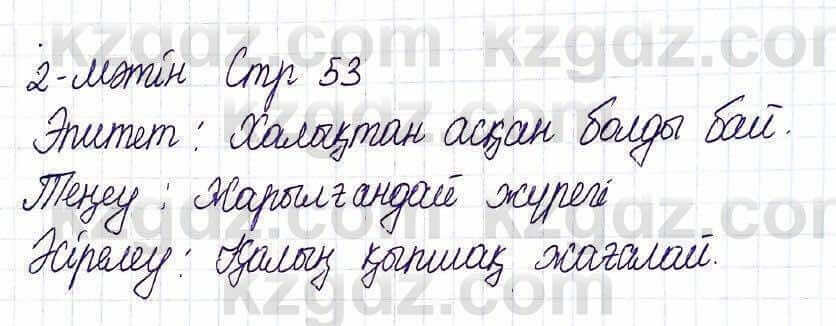 2-мәтін Стр 53
Эпитет: Халықтан асқан болды бай.
Теңеу: Жарылғандай жүрегі
Әсірелеу: Қалың қыпшақ жағалай.